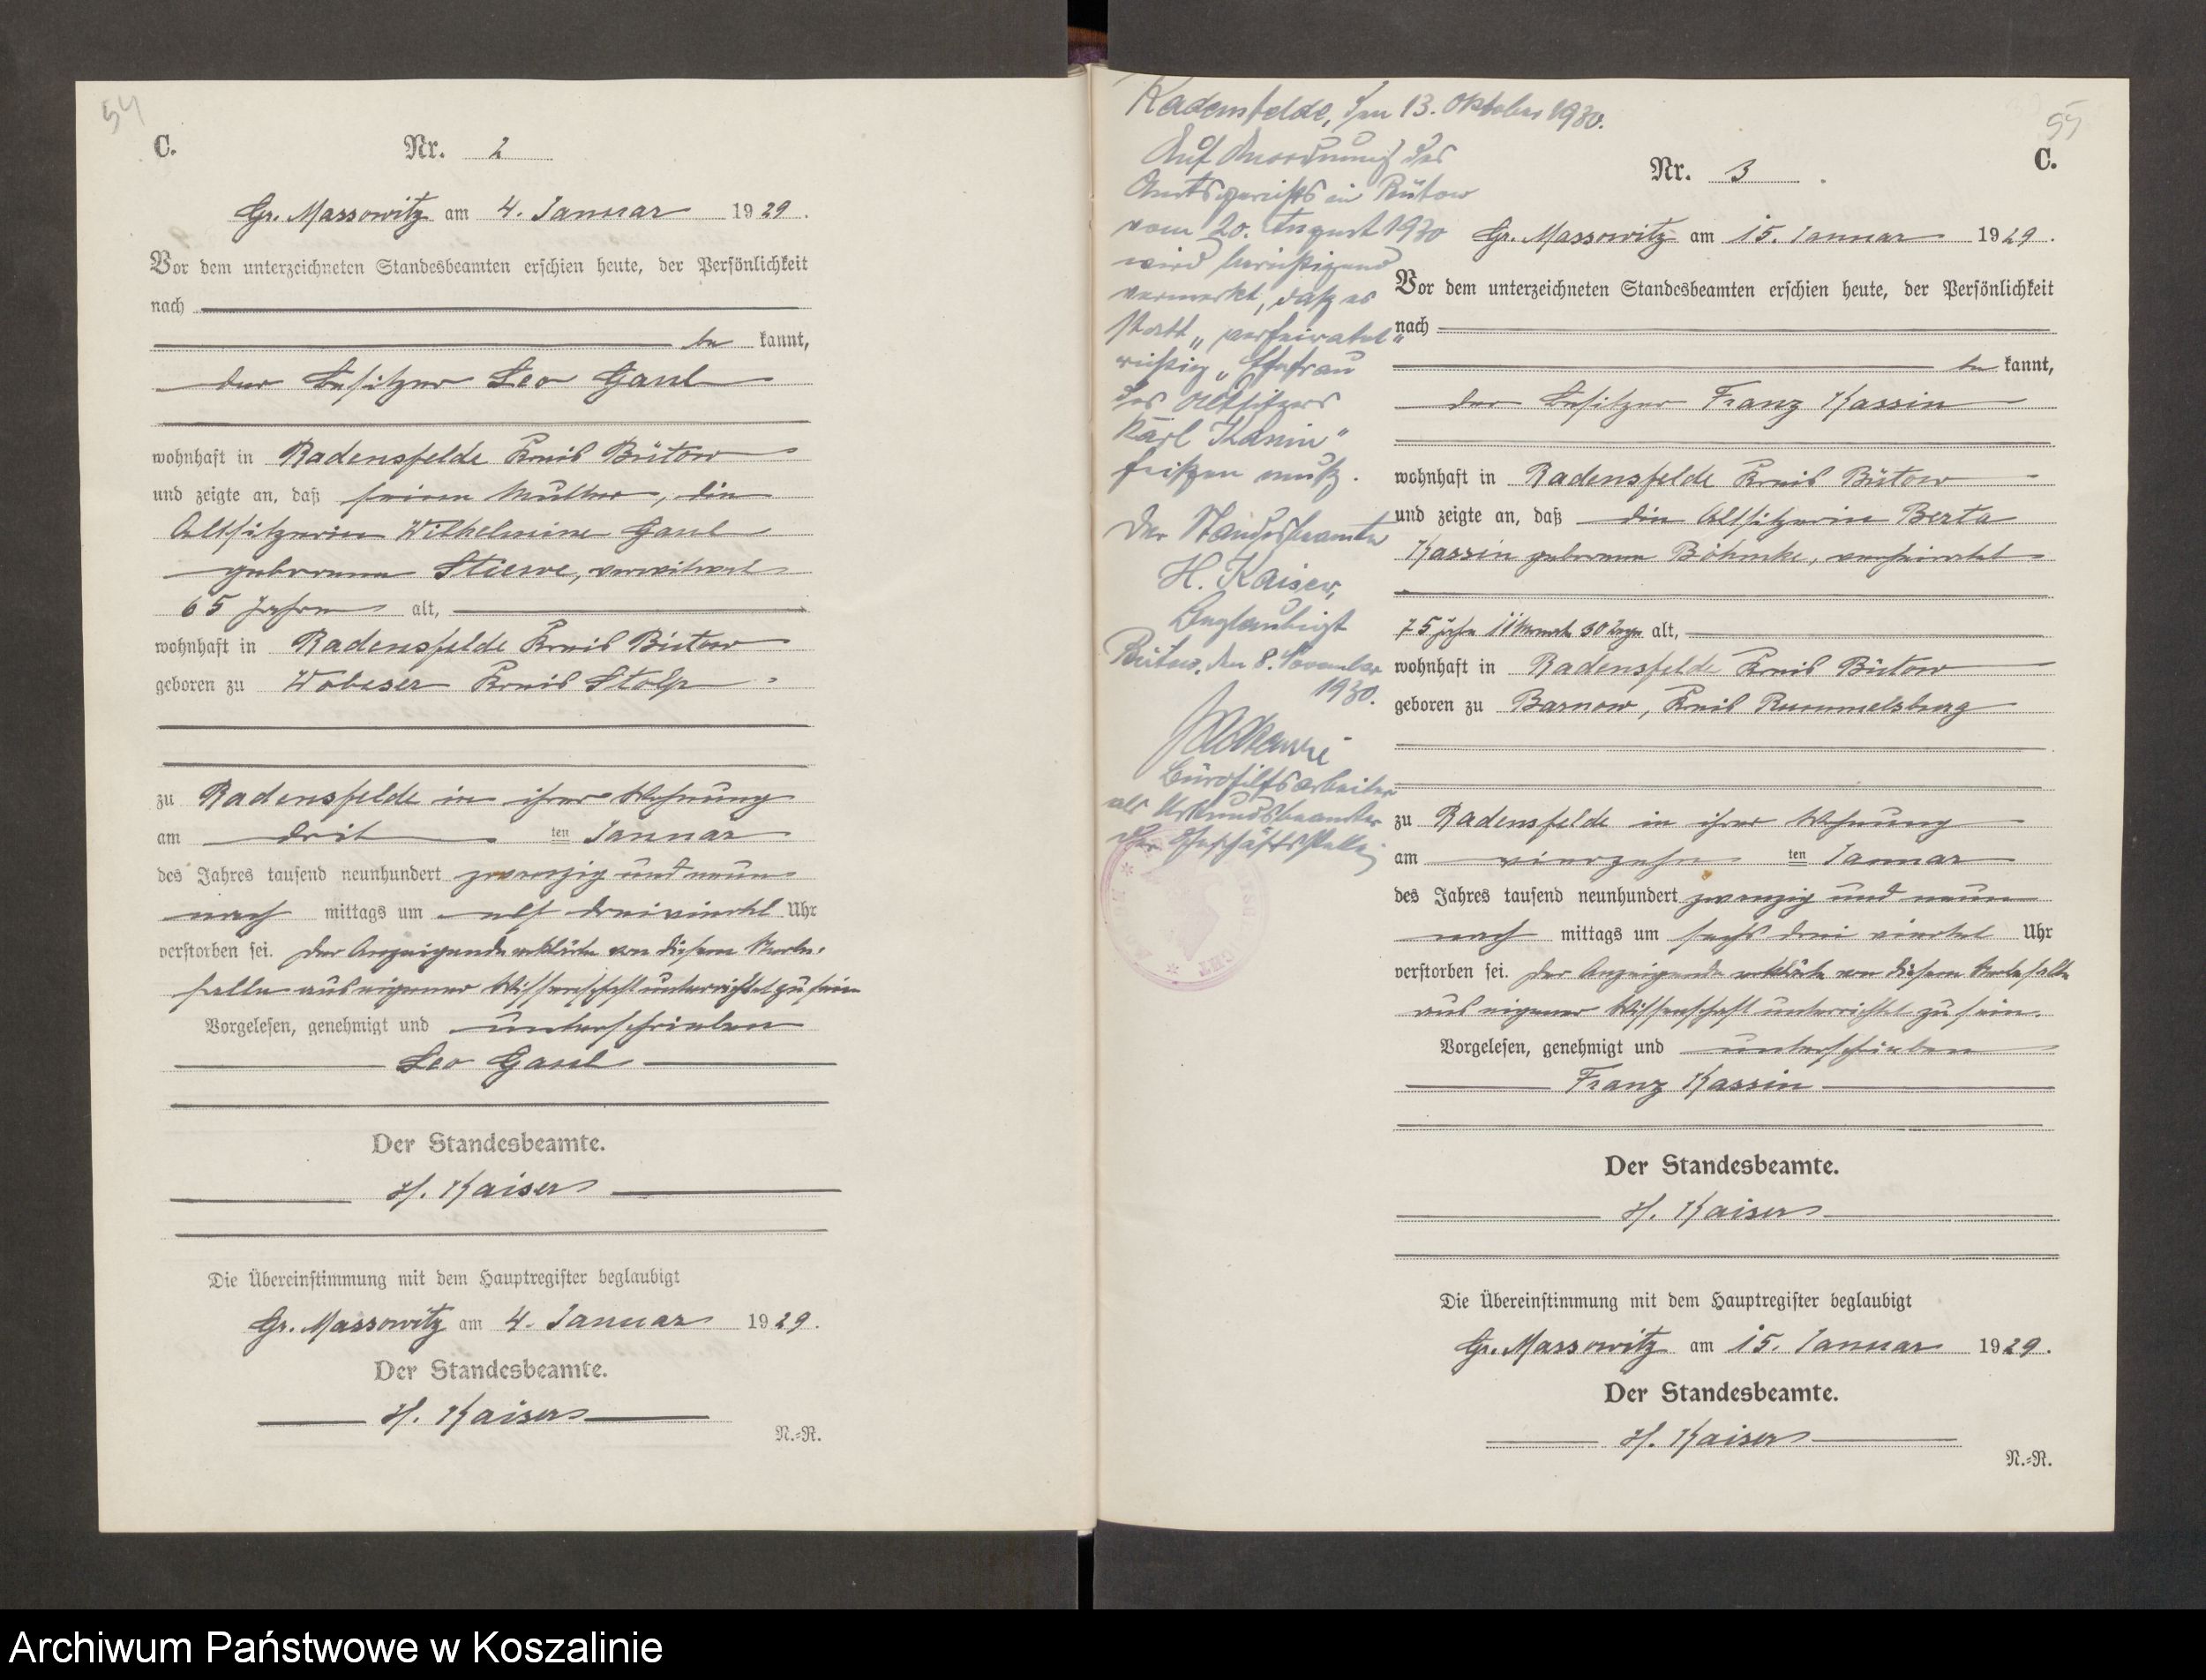 54
C.
Nr. 2
Gr. Massowitz am 4. Januar 1929.
Vor dem unterzeichneten Standesbeamten erschien heute, der Persönlichkeit
nach
be kannt,
der Besitzer Leo Gaul
wohnhaft in Radensfelde Kreis Bütow
und zeigte an, daß seine Mutter, die
Altsitzerin Wilhelmine Gaul
geborene Stiewe, verwitwet
65 Jahre alt,
wohnhaft in Radensfelde Kreis Bütow
geboren zu Wobeser Kreis Stolp
zu Radensfelde in ihrer Wohnung
am drit ten Januar
des Jahres tausend neunhundert zwanzig und neun
nach mittags um elf dreiviertel Uhr
verstorben sei. Der Anzeigende erklärte von diesem Sterbe-
falle aus eigener Wissenschaft unterrichtet zu sein
Vorgelesen, genehmigt und unterschrieben
Leo Gaul
Der Standesbeamte.
H. Kaiser
Die Übereinstimmung mit dem Hauptregister beglaubigt
Gr. Massowitz am 4. Januar 1929.
Der Standesbeamte.
H. Kaiser
N.-R.
Radensfelde, den 13. Oktober 1930.
Auf Anordnung des
Amtsgerichts in Bütow
vom 20. August 1930
wird berichtigend
vermerkt, daß es
statt „verheiratet“
richtig „Ehefrau
des Altsitzers
Karl Kassin“
heißen muß.
Der Standesbeamte
H. Kaiser,
Beglaubigt
Bütow, den 8. November
1930.
Bürohilfsarbeiter
als Urkundsbeamter
der Geschäftsstelle
55
C.
Nr. 3
Gr. Massowitz am 15. Januar 1929.
Vor dem unterzeichneten Standesbeamten erschien heute, der Persönlichkeit
nach
be kannt,
der Besitzer Franz Kassin
wohnhaft in Radensfelde Kreis Bütow
und zeigte an, daß die Altsitzerin Berta
Kassin geborene Böhmke, verheiratet
75 Jahre 11 Monate 30 Tage alt,
wohnhaft in Radensfelde Kreis Bütow
geboren zu Barnow, Kreis Rummelsburg
zu Radensfelde in ihrer Wohnung
am vierzehn ten Januar
des Jahres tausend neunhundert zwanzig und neun
nach mittags um sechs drei viertel Uhr
verstorben sei. Der Anzeigende erklärte von diesem Sterbefalle
aus eigener Wissenschaft unterrichtet zu sein.
Vorgelesen, genehmigt und unterschrieben
Franz Kassin
Der Standesbeamte.
H. Kaiser
Die Übereinstimmung mit dem Hauptregister beglaubigt
Gr. Massowitz am 15. Januar 1929.
Der Standesbeamte.
H. Kaiser
N.-R.
Archiwum Państwowe w Koszalinie